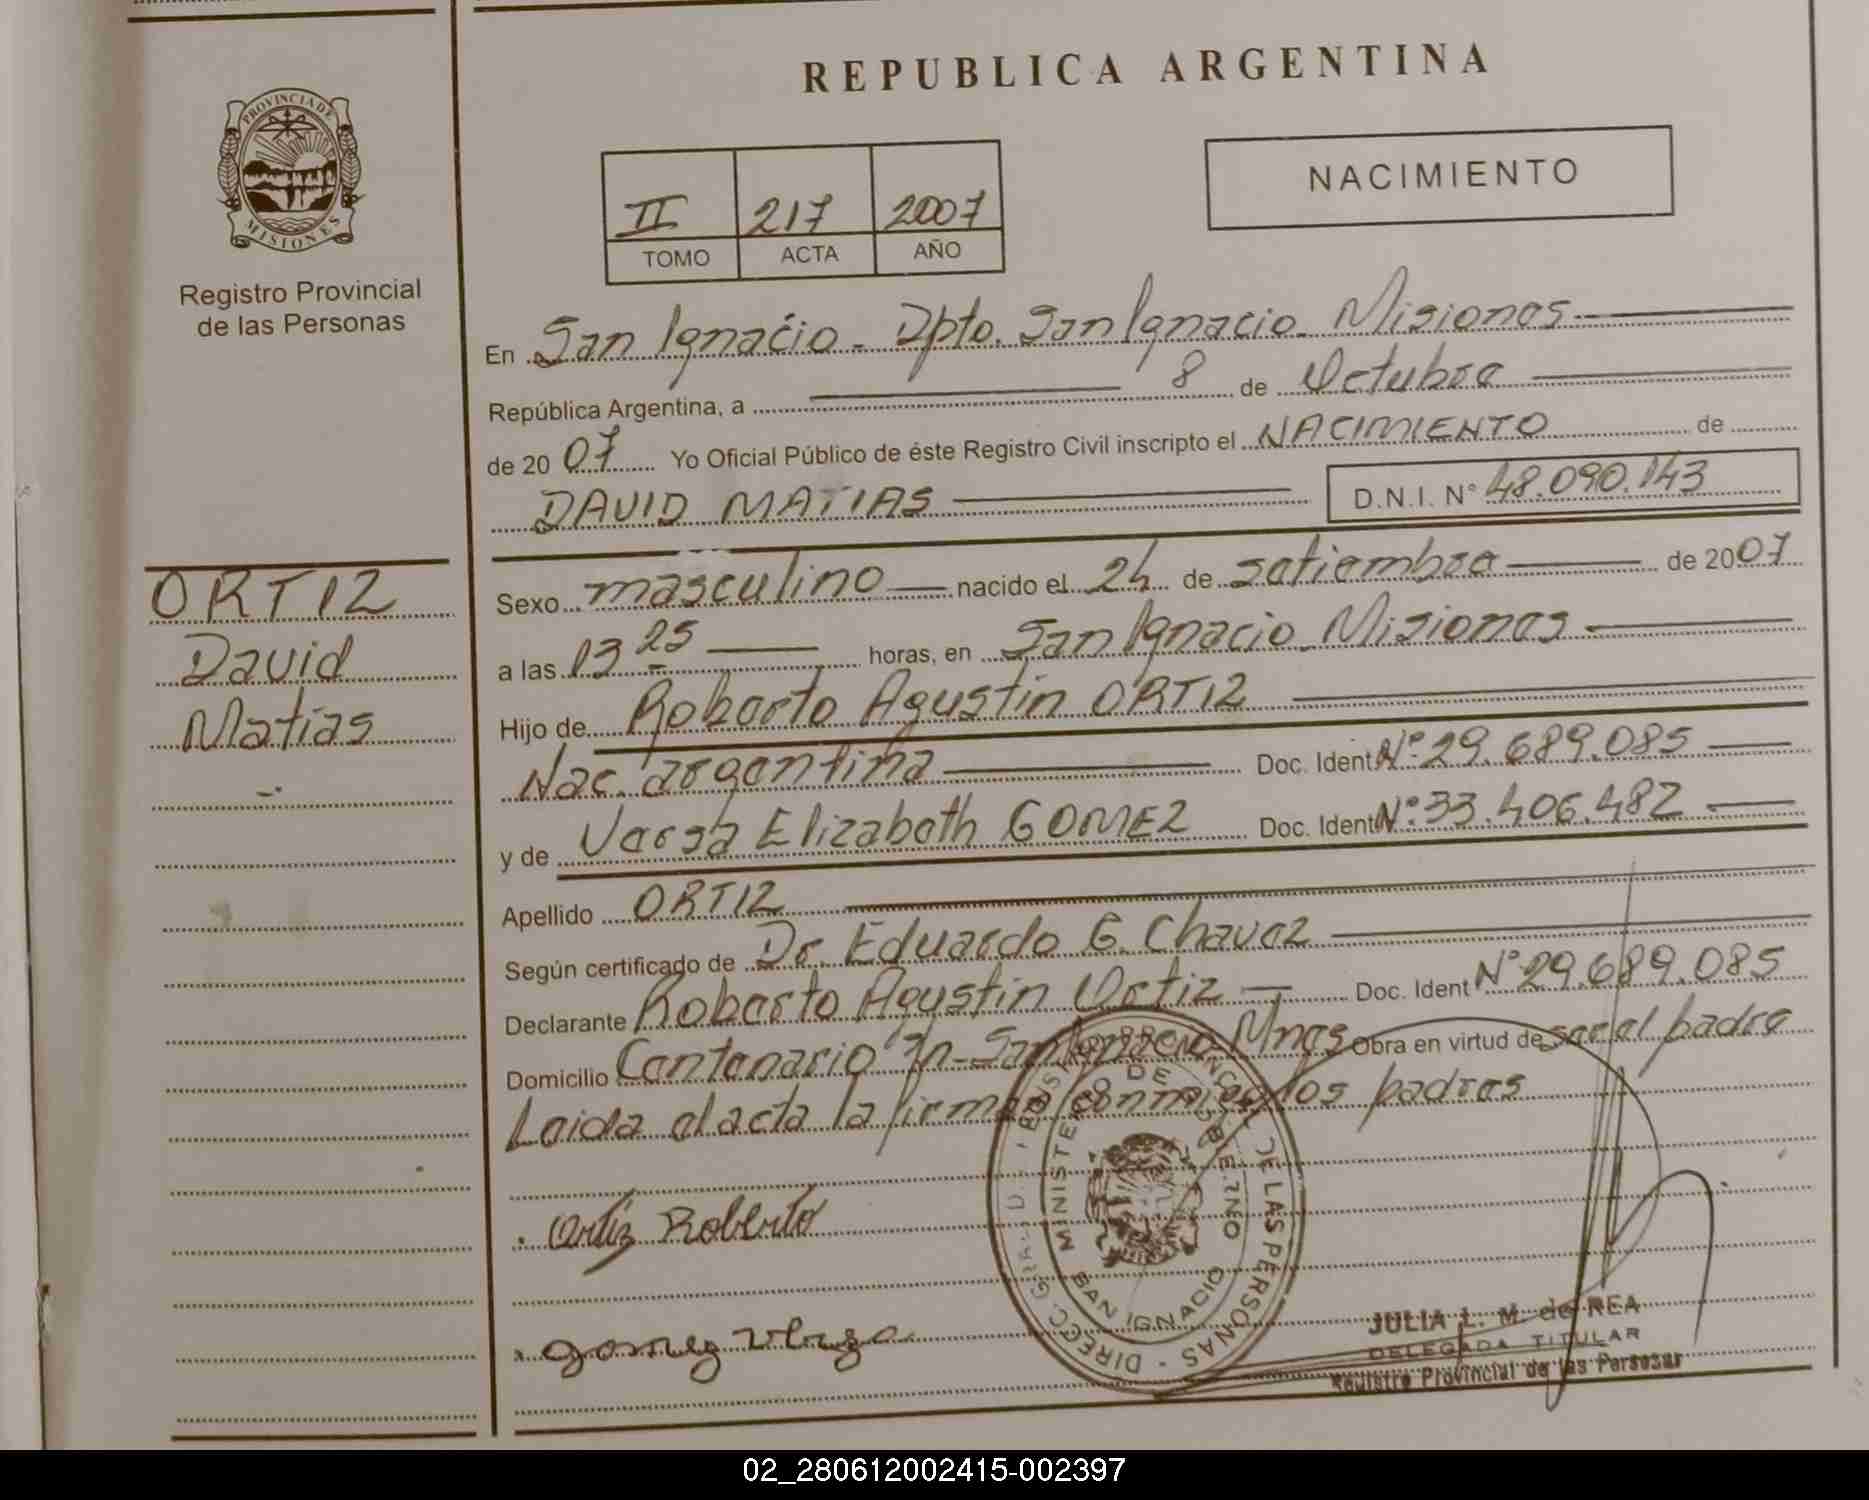 REPUBLICA ARGENTINA
PROVINCIA DE
MISIONES
Registro Provincial
de las Personas
NACIMIENTO
II 217 2007
TOMO ACTA AÑO
En San Ignacio - Dpto. San Ignacio - Misiones
República Argentina, a 8 de Octubre
de 2007 Yo Oficial Público de éste Registro Civil inscripto el NACIMIENTO de
DAVID MATIAS D.N.I. N° 48.090.143
ORTIZ
David
Matías
Sexo masculino nacido el 24 de setiembre de 2007
a las 13 25 horas, en San Ignacio - Misiones
Hijo de Roberto Agustín ORTIZ
Nac. argentina Doc. Ident N°: 29.689.085
y de Elizabeth GOMEZ Doc. Ident N°: 33.406.482
Apellido ORTIZ
Según certificado de Dr. Eduardo G. Chavez
Declarante Roberto Agustín Ortiz Doc. Ident N° 29.689.085
Domicilio Centenario Mnes Obra en virtud de ser el padre
Leida el acta la firman conmigo los padres
Ortíz Roberto
gomez
DIRECC. GRAL. DE LAS PERSONAS
MINISTERIO DE GOBIERNO
SAN IGNACIO
JULIA L. M. de REA
DELEGADA TITULAR
Registro Provincial de las Personas
02_280612002415-002397